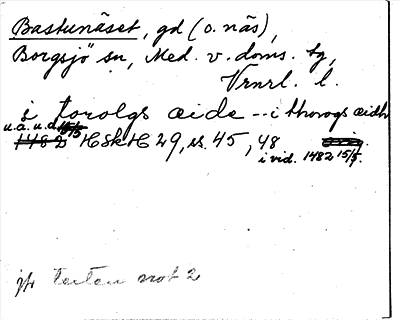 Bastunäset, gd (o. näs),
Borgsjö sn, Med. v. doms. tg,
Vrnrl. l.
i torolgs æide -- i thorogs æidh
u.å. u.d.
1482 HSkH 29, ss. 45, 48
i vid. 1482 15/5.
jfr texten not 2